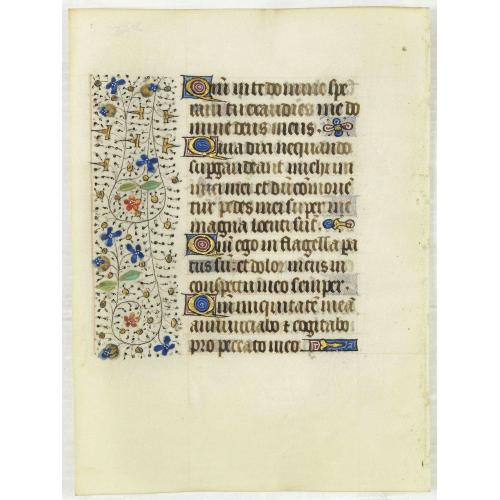 Qm̄ in te domine spe
raui tu exaudies me do
mine deus meus.
Quia dixi nequando
supgaudeant michi ini
mici mei et dū cōmouē
tur pedes mei super me
magna locuti sūt.
Qm̄ ego in flagella pa
tus sū: et dolor meus in
conspectu meo semper.
Qm̄ iniquitatē meā
annunciabo ⁊ cogitabo
pro peccato meo